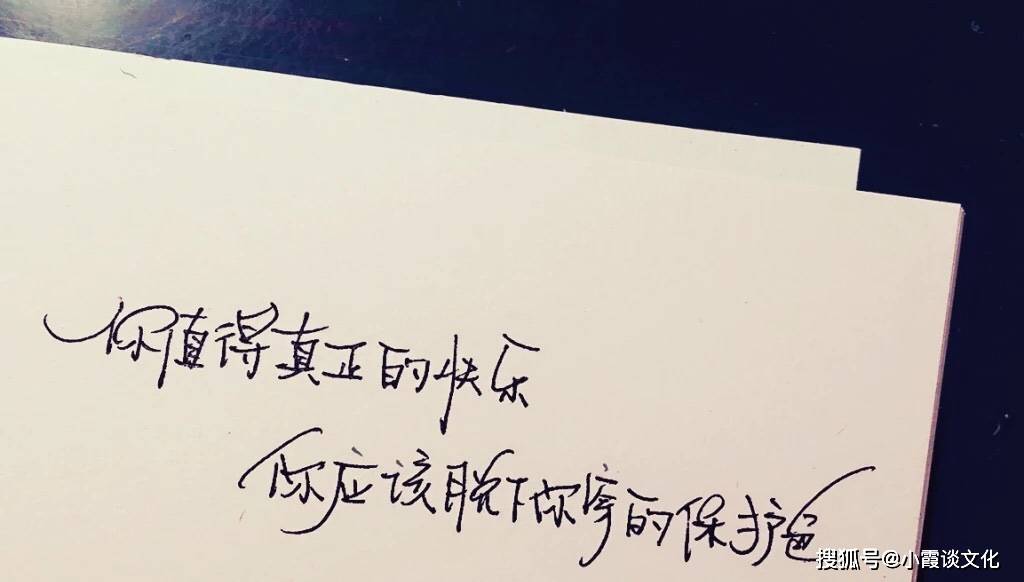 你值得真正的快乐
你应该脱下你穿的保护色
搜狐号@小霞谈文化